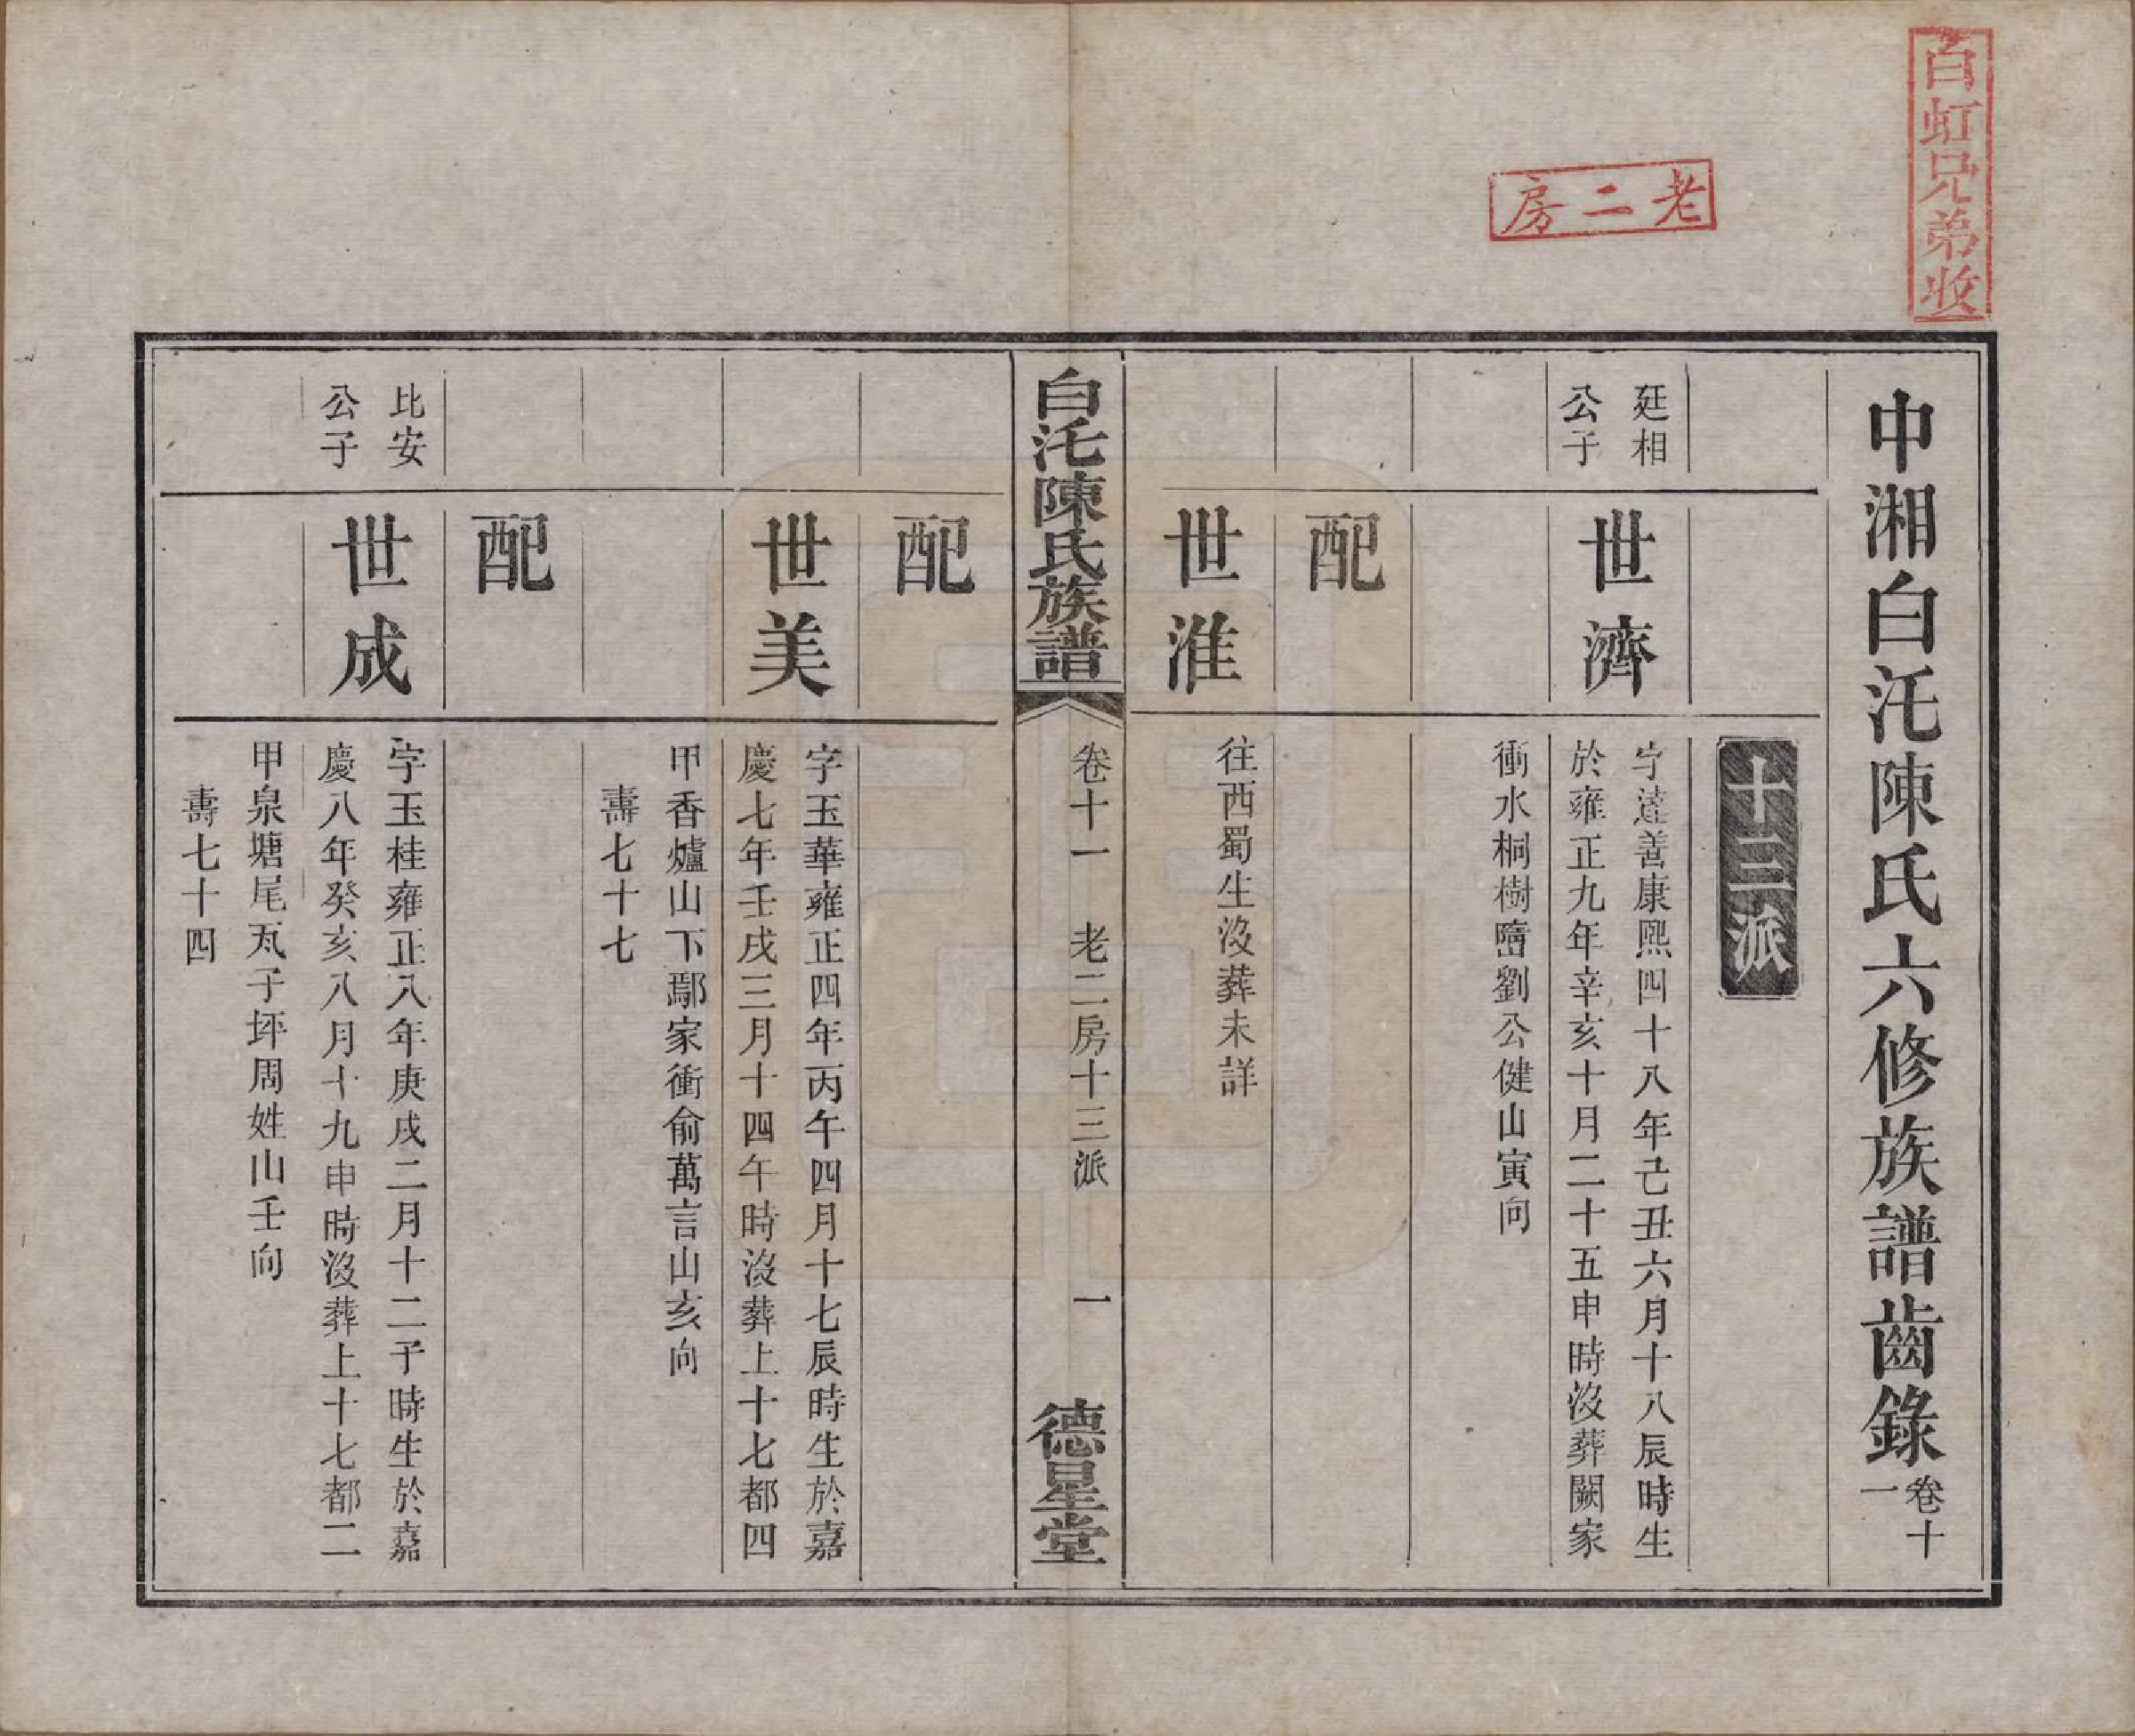 白虹兄弟收
老二房
中湘白沰陳氏六修族譜齒錄
卷十
一
十三派
延相
公子
世濟
字達善康熙四十八年己丑六月十八辰時生
於雍正九年辛亥十月二十五申時沒葬闕家
衝水桐樹𡺾劉公健山寅向
配
世淮
往西蜀生沒葬未詳
白沰陳氏族譜
卷十一
老二房十三派
一
德星堂
配
世美
字玉華雍正四年丙午四月十七辰時生於嘉
慶七年壬戌三月十四午時沒葬上十七都四
甲香爐山下鄢家衝俞萬言山亥向
壽七十七
配
比安
公子
世成
字玉桂雍正八年庚戌二月十二子時生於嘉
慶八年癸亥八月十九申時沒葬上十七都二
甲泉塘尾瓦子坪周姓山壬向
壽七十四